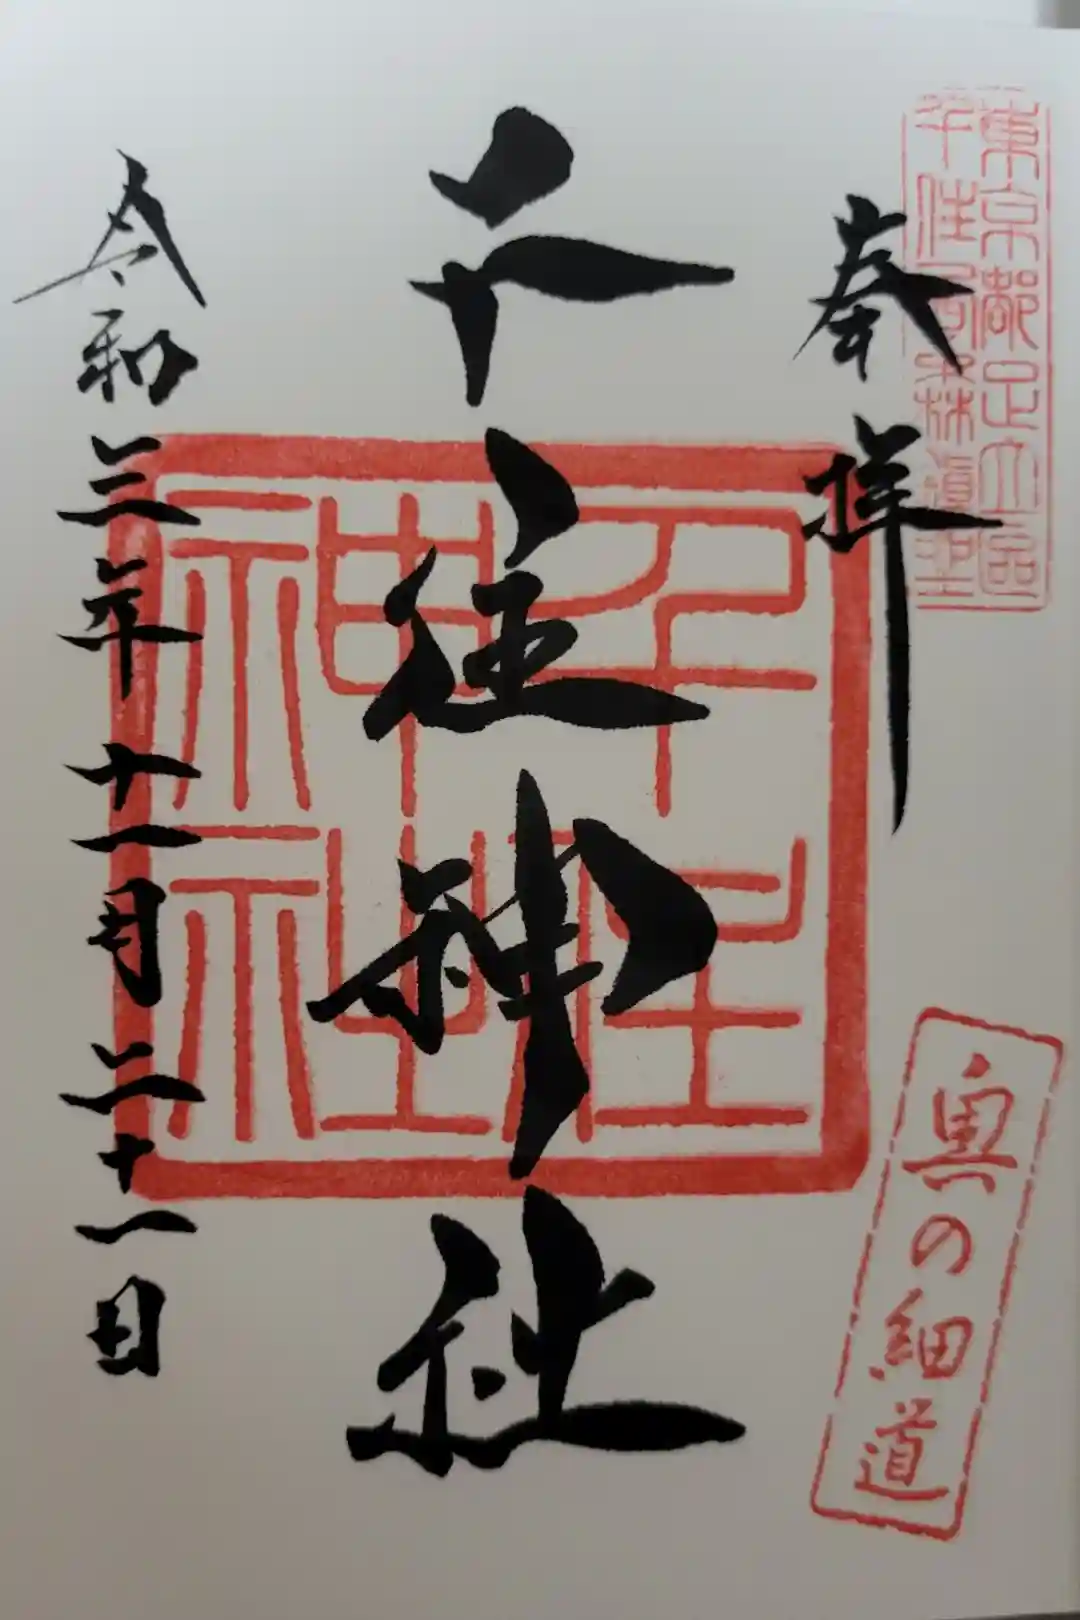 東京都足立区
奉拝
千住神社
千住神社
令和三年十一月二十一日
奥の細道